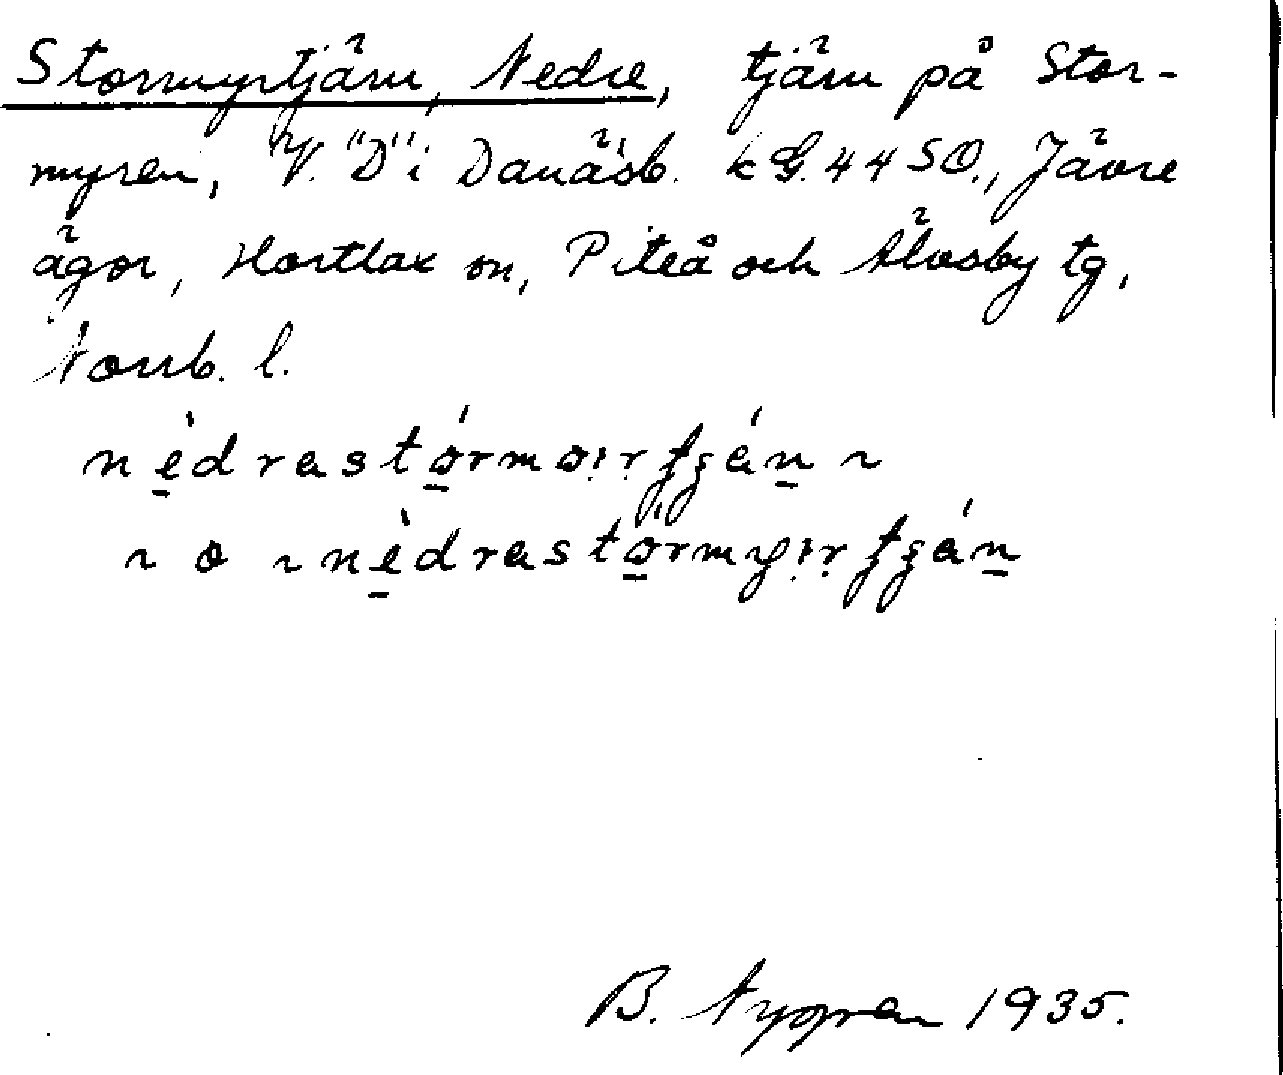 Stormyrtjärn, Nedre, tjärn på Stor-
myren, V. "D" i Danäsb. kG. 44 SO., Jävre
ägor, Hortlax sn, Piteå och Älvsby tg,
Norrb. l.
nèdrastórmøırʈʂán ~
~ o ~ nèdrastórmyırʈʂán
B. Nygren 1935.